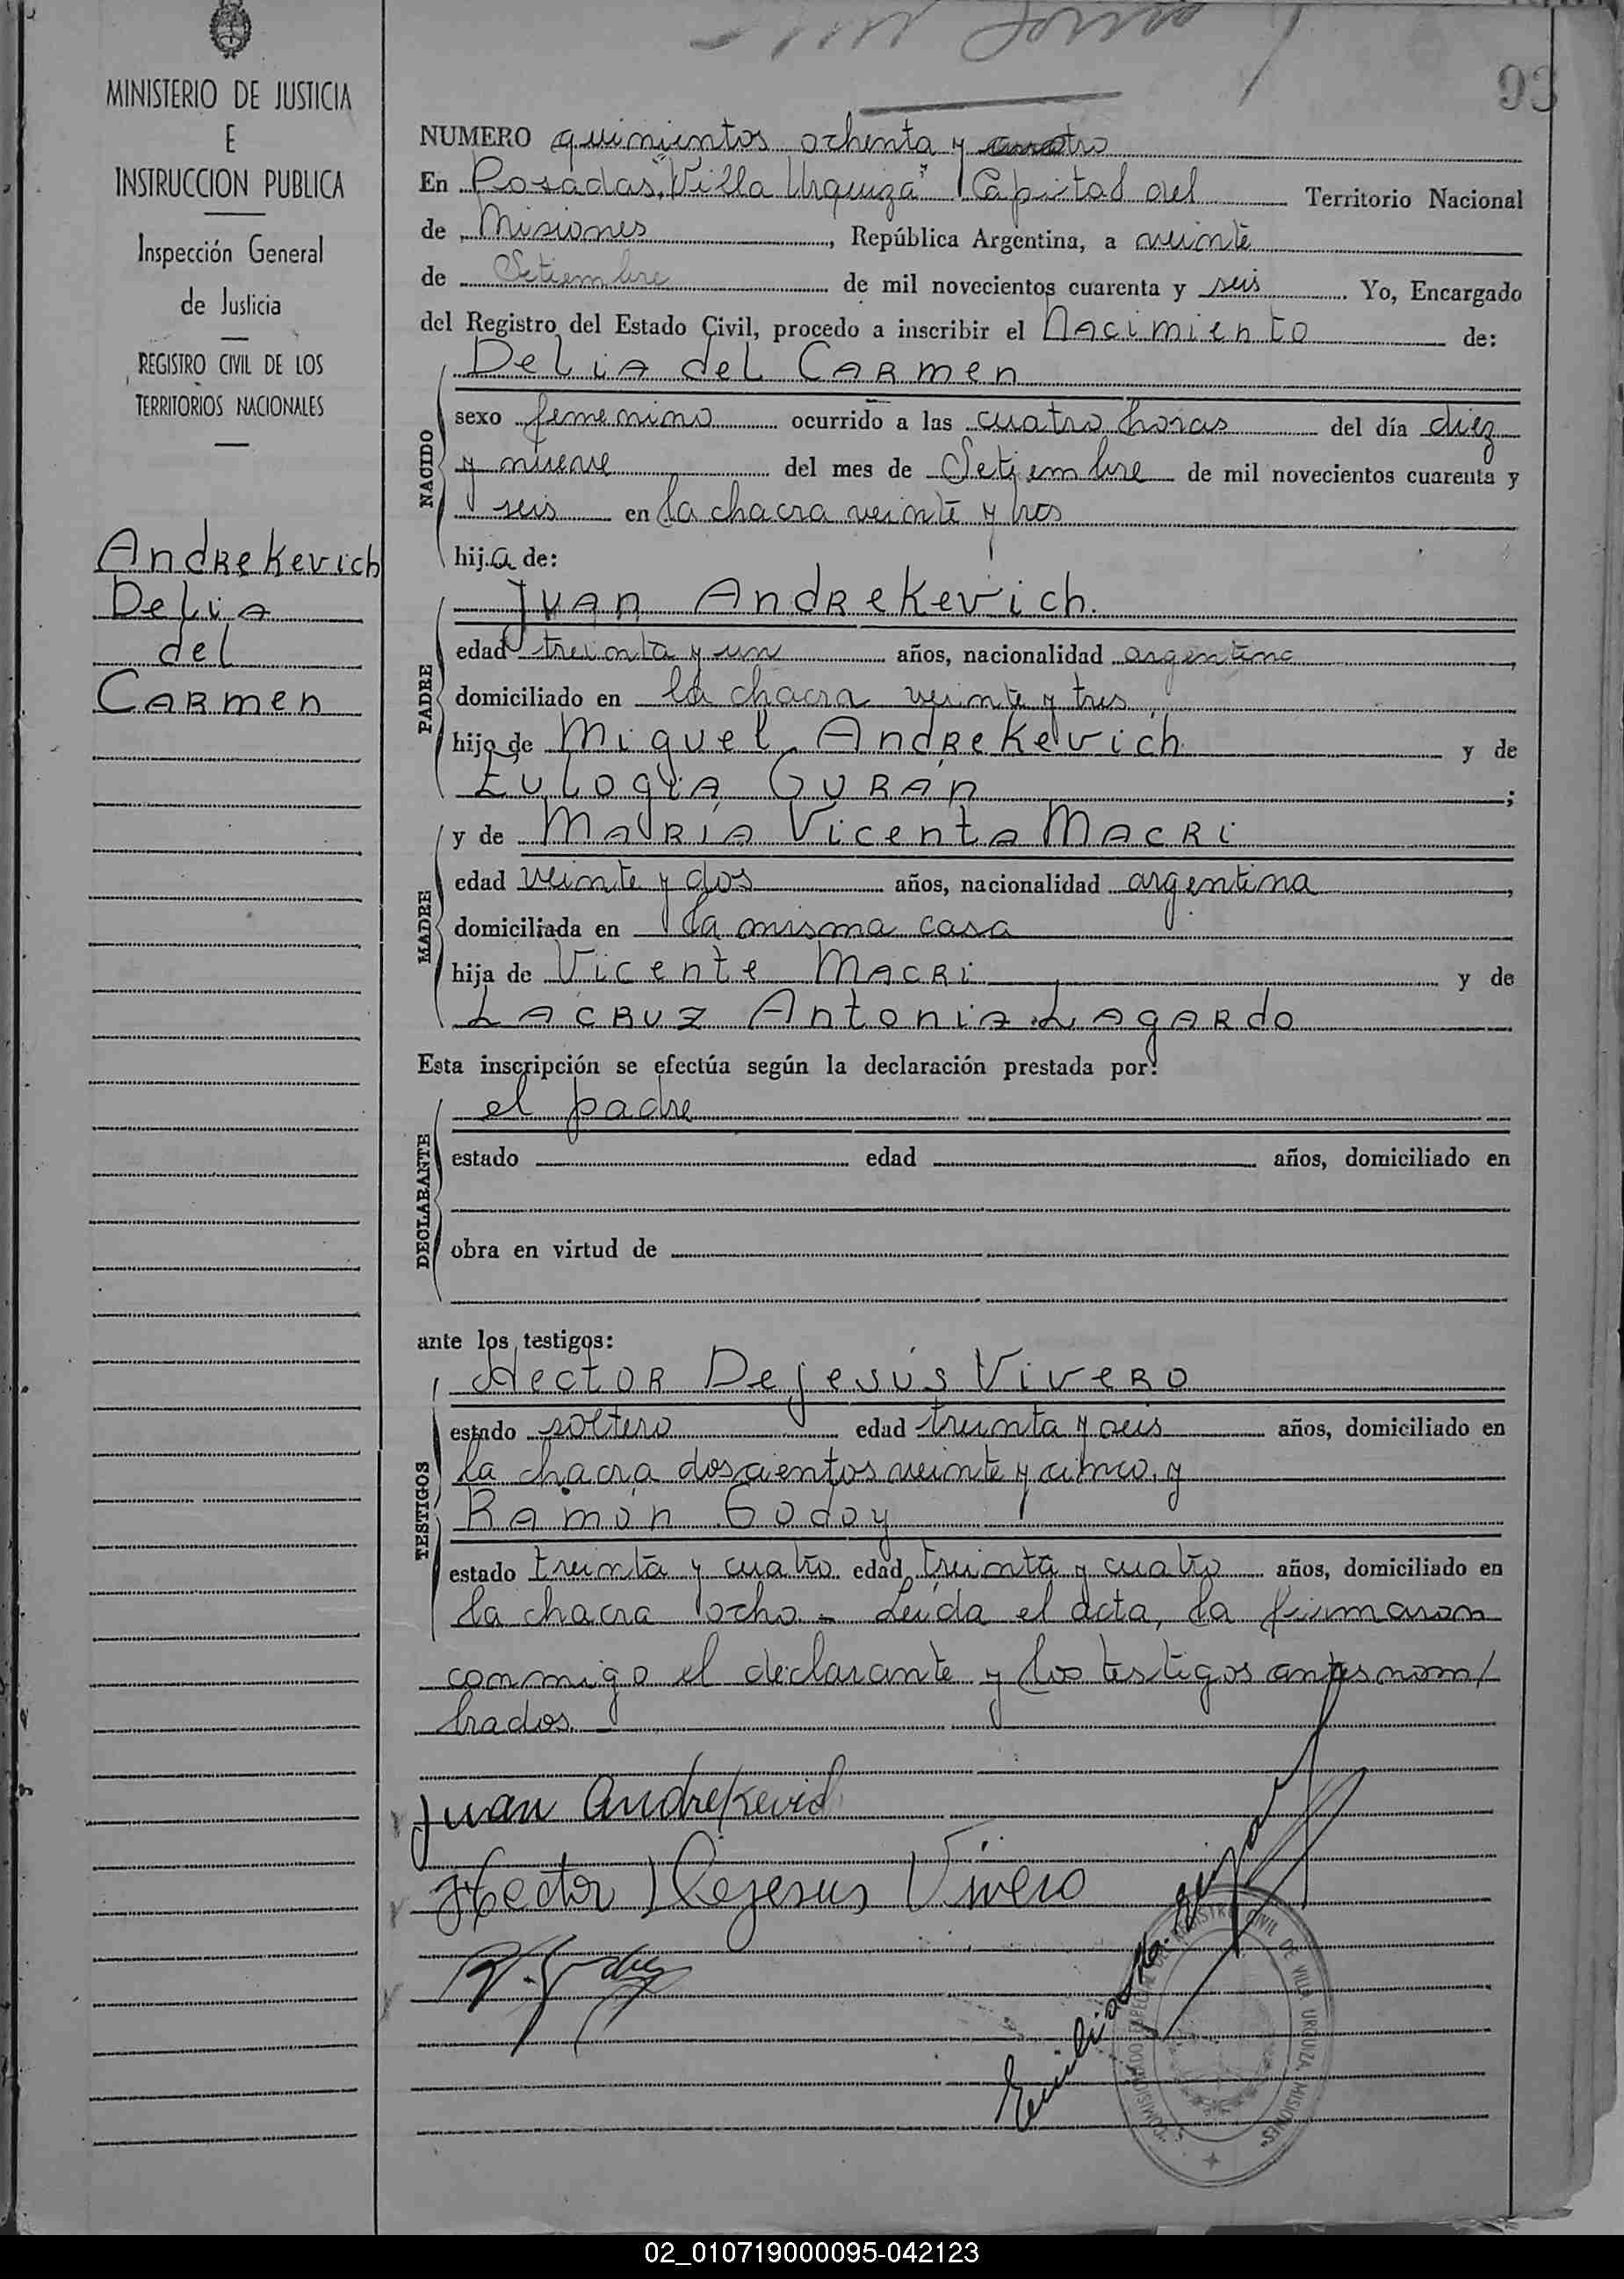 MINISTERIO DE JUSTICIA
E
INSTRUCCION PUBLICA
Inspección General
de Justicia
REGISTRO CIVIL DE LOS
TERRITORIOS NACIONALES
Andrekevich
Delia
del
Carmen
93
NUMERO quinientos ochenta y cuatro
En Posadas, "Villa Urquiza" Capital del Territorio Nacional
de Misiones, República Argentina, a veinte
de Setiembre de mil novecientos cuarenta y seis. Yo, Encargado
del Registro del Estado Civil, procedo a inscribir el Nacimiento de:
Delia del Carmen
NACIDO
sexo femenino ocurrido a las cuatro horas del día diez
y nueve del mes de Setiembre de mil novecientos cuarenta y
seis en la chacra veinte y tres
hija de:
Juan Andrekevich.
PADRE
edad treinta y un años, nacionalidad argentina,
domiciliado en la chacra veinte y tres
hijo de Miguel Andrekevich y de
Eulogia Guran;
y de María Vicenta Macri
MADRE
edad veinte y dos años, nacionalidad argentina,
domiciliada en la misma casa
hija de Vicente Macri y de
Lacruz Antonia Lagardo
Esta inscripción se efectúa según la declaración prestada por:
el padre
DECLARANTE
estado edad años, domiciliado en
obra en virtud de
ante los testigos:
Hector Dejesús Vivero
TESTIGOS
estado soltero edad treinta y seis años, domiciliado en
la chacra doscientos veinte y cinco, y
Ramón Godoy
estado treinta y cuatro edad treinta y cuatro años, domiciliado en
la chacra ocho - Leida el acta, la firmaron
conmigo el declarante y los testigos antes nom/
brados.
Juan Andrekevich
Hector Dejesus Vivero
R. Godoy
REGISTRO CIVIL DE VILLA URQUIZA, MISIONES
02_010719000095-042123